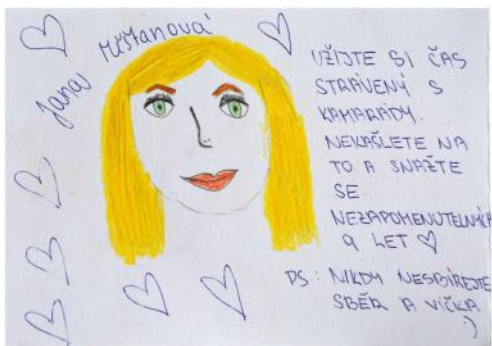 Jana Měšťanová
UŽIJTE SI ČAS
STRÁVENÝ S
KAMARÁDY.
NEKAŠLETE NA
TO A SNAŽTE
SE
NEZAPOMENUTELNÝCH
9 LET ♡
PS: NIKDY NESBÍREJTE
SBĚR A VÍČKA
:)